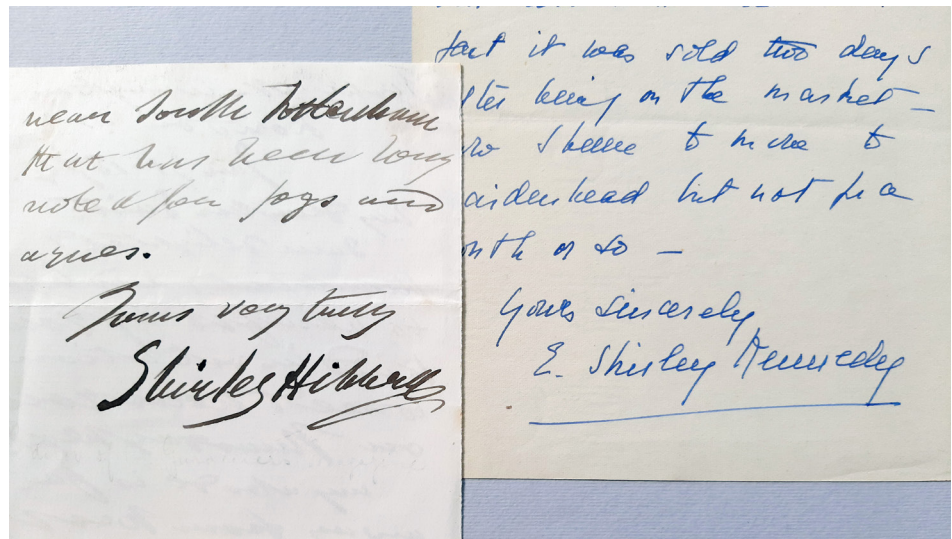 near South Tottenham
that has been long
noted for fogs and
agues.
Yours very truly
Shirley Hibberd
fact it was sold two days
after being on the market –
so I have to move to
aidenhead but not for a
nth or so –
Yours sincerely
E. Shirley Kennedy